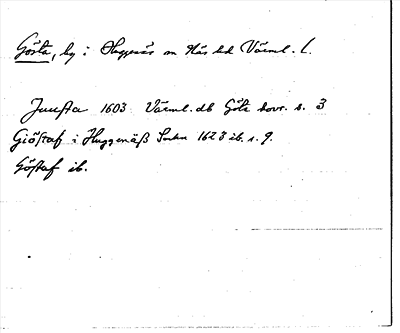 Gösta, by i Huggenäs sn Näs hd Värml. l.
Juusta 1603 Värml. db Göta hovr. s. 3
Giöstaf i Huggenäß Sockn 1623 ib. s. 9.
Göstaf ib.